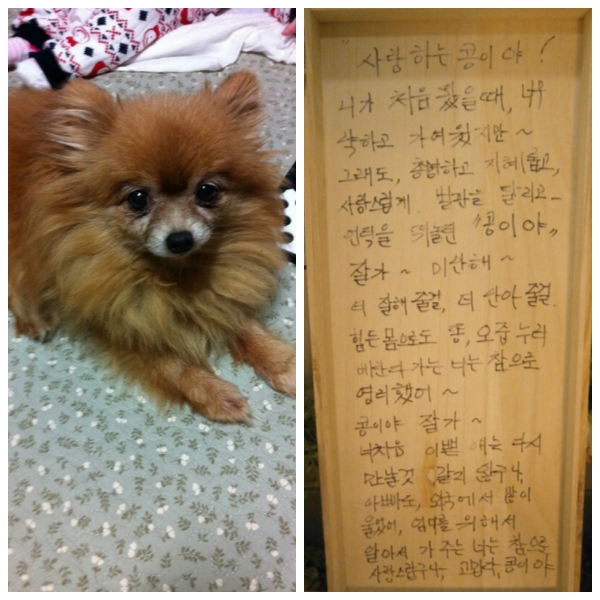 "사랑하는 콩이야!
니가 처음 왔을때, 너무
약하고 가여웠지만 ~
그래도, 총명하고 지혜롭고,
사랑스럽게. 발판을 달리고 -
언덕을 뛰놀던 "콩이야"
잘가 ~ 미안해 ~
더 잘해줄걸, 더 안아줄걸.
힘든몸으로도 똥, 오줌 누러
베란다 가는 너는 참으로
영리했어 ~
콩이야 잘가 ~
너처럼 이쁜 애는 다시
만날것 같지 않구나,
아빠도, 외국에서 많이
울었어, 엄마를 위해서
알아서 가 주는 너는 참으로,
사랑스럽구나, 고맙다, 콩이야